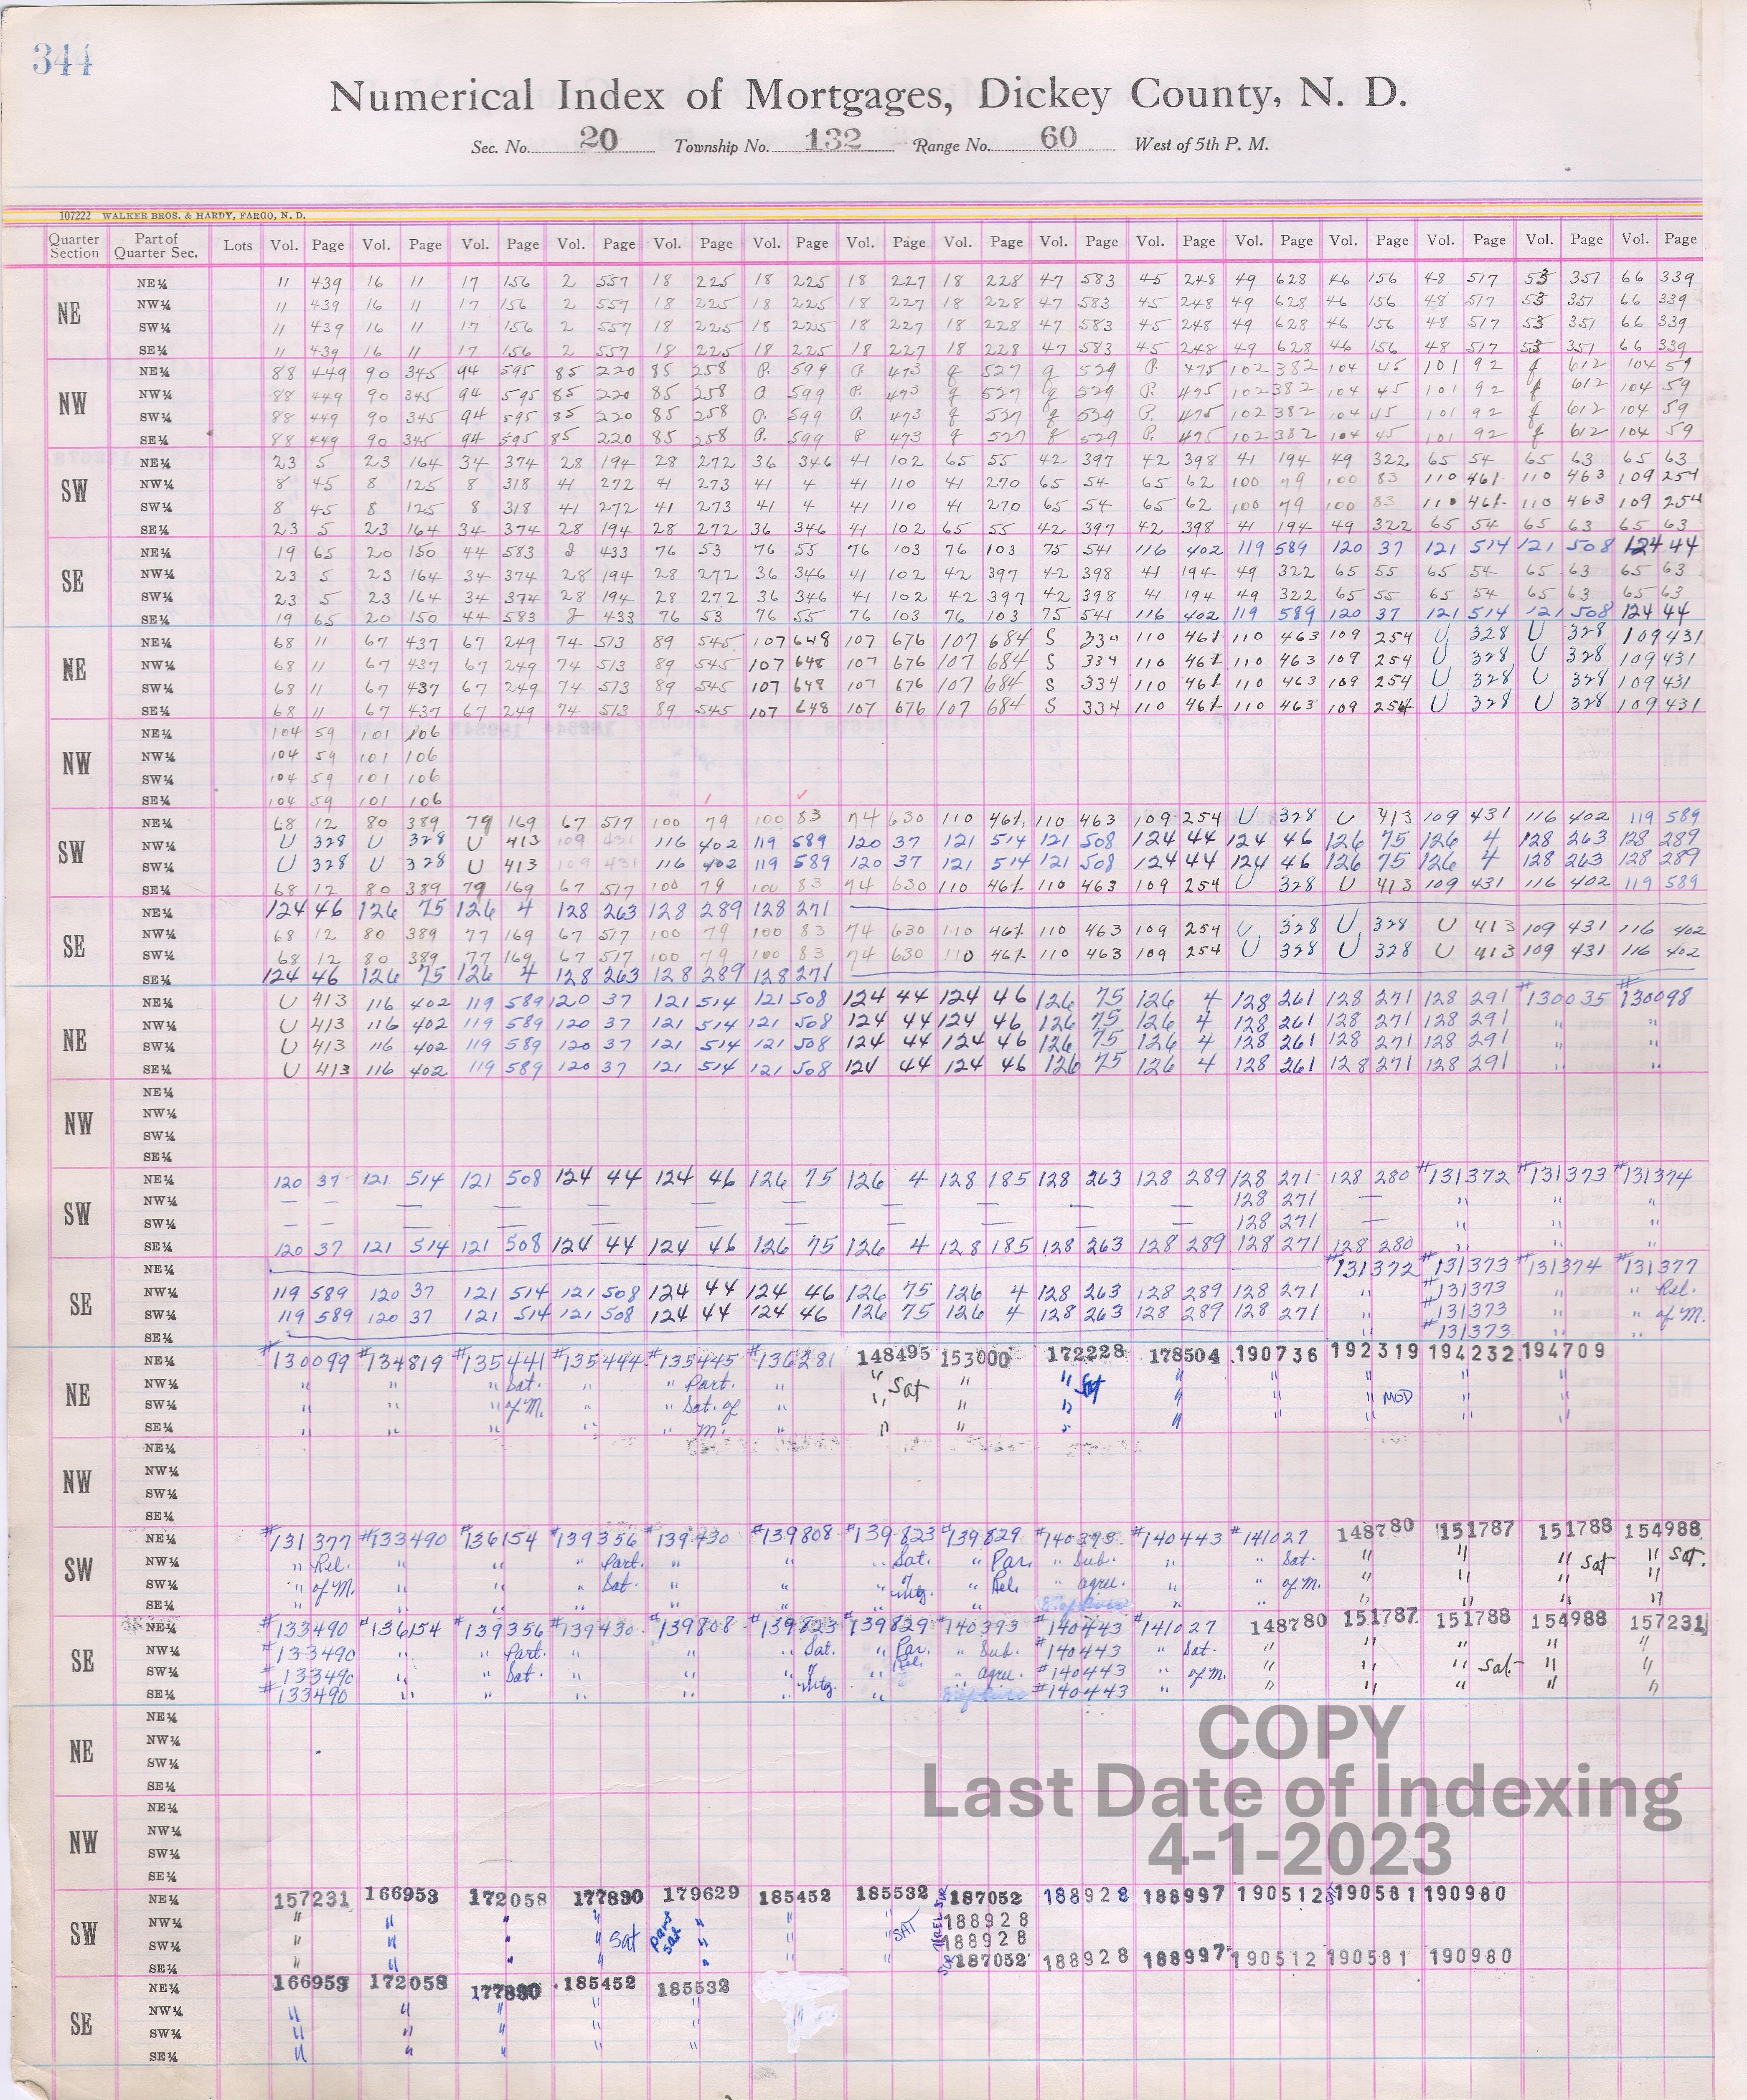 344
Numerical Index of Mortgages, Dickey County, N. D.
Sec. No. 20 Township No. 132 Range No. 60 West of 5th P. M.
107222 WALKER BROS. & HARDY, FARGO, N. D.
Quarter Section Part of Quarter Sec. Lots Vol. Page Vol. Page Vol. Page Vol. Page Vol. Page Vol. Page Vol. Page Vol. Page Vol. Page Vol. Page Vol. Page Vol. Page Vol. Page Vol. Page Vol. Page
NE
NE¼ 11 439 16 11 17 156 2 557 18 225 18 225 18 227 18 228 47 583 45 248 49 628 46 156 48 517 53 351 66 339
NW¼ 11 439 16 11 17 156 2 557 18 225 18 225 18 227 18 228 47 583 45 248 49 628 46 156 48 517 53 351 66 339
SW¼ 11 439 16 11 17 156 2 557 18 225 18 225 18 227 18 228 47 583 45 248 49 628 46 156 48 517 53 351 66 339
SE¼ 11 439 16 11 17 156 2 557 18 225 18 225 18 227 18 228 47 583 45 248 49 628 46 156 48 517 53 351 66 339
NW
NE¼ 88 449 90 345 94 595 85 220 85 258 P. 599 P. 473 q 527 q 529 P. 475 102 382 104 45 101 92 612 104 59
NW¼ 88 449 90 345 94 595 85 220 85 258 599 P. 473 q 527 q 529 P. 475 102 382 104 45 101 92 612 104 59
SW¼ 88 449 90 345 94 595 85 220 85 258 P. 599 P. 473 q 527 q 529 P. 475 102 382 104 45 101 92 612 104 59
SE¼ 88 449 90 345 94 595 85 220 85 258 P. 599 P 473 q 527 q 529 P. 475 102 382 104 45 101 92 612 104 59
SW
NE¼ 23 5 23 164 34 374 28 194 28 272 36 346 41 102 65 55 42 397 42 398 41 194 49 322 65 54 65 63 65 63
NW¼ 8 45 8 125 8 318 41 272 41 273 41 4 41 110 41 270 65 54 65 62 100 79 100 83 110 461 110 463 109 254
SW¼ 8 45 8 125 8 318 41 272 41 273 41 4 41 110 41 270 65 54 65 62 100 79 100 83 110 461 110 463 109 254
SE¼ 23 5 23 164 34 374 28 194 28 272 36 346 41 102 65 55 42 397 42 398 41 194 49 322 65 54 65 63 65 63
SE
NE¼ 19 65 20 150 44 583 433 76 53 76 55 76 103 76 103 75 541 116 402 119 589 120 37 121 514 121 508 124 44
NW¼ 23 5 23 164 34 374 28 194 28 272 36 346 41 102 42 397 42 398 41 194 49 322 65 55 65 54 65 63 65 63
SW¼ 23 5 23 164 34 374 28 194 28 272 36 346 41 102 42 397 42 398 41 194 49 322 65 55 65 54 65 63 65 63
SE¼ 19 65 20 150 44 583 433 76 53 76 55 76 103 76 103 75 541 116 402 119 589 120 37 121 514 121 508 124 44
NE
NE¼ 68 11 67 437 67 249 74 513 89 545 107 648 107 676 107 684 S 334 110 461 110 463 109 254 U 328 U 328 109 431
NW¼ 68 11 67 437 67 249 74 513 89 545 107 648 107 676 107 684 S 334 110 461 110 463 109 254 U 328 U 328 109 431
SW¼ 68 11 67 437 67 249 74 513 89 545 107 648 107 676 107 684 S 334 110 461 110 463 109 254 U 328 U 328 109 431
SE¼ 68 11 67 437 67 249 74 513 89 545 107 648 107 676 107 684 S 334 110 461 110 463 109 254 U 328 U 328 109 431
NW
NE¼ 104 59 101 106
NW¼ 104 59 101 106
SW¼ 104 59 101 106
SE¼ 104 59 101 106
SW
NE¼ 68 12 80 389 79 169 67 517 100 79 100 83 74 630 110 461 110 463 109 254 U 328 U 413 109 431 116 402 119 589
NW¼ U 328 U 328 U 413 109 431 116 402 119 589 120 37 121 514 121 508 124 44 124 46 126 75 126 4 128 263 128 289
SW¼ U 328 U 328 U 413 109 431 116 402 119 589 120 37 121 514 121 508 124 44 124 46 126 75 126 4 128 263 128 289
SE¼ 68 12 80 389 79 169 67 517 100 79 100 83 74 630 110 461 110 463 109 254 U 328 U 413 109 431 116 402 119 589
SE
NE¼ 124 46 126 75 126 4 128 263 128 289 128 271
NW¼ 68 12 80 389 77 169 67 517 100 79 100 83 74 630 110 461 110 463 109 254 U 328 U 328 U 413 109 431 116 402
SW¼ 68 12 80 389 77 169 67 517 100 79 100 83 74 630 110 461 110 463 109 254 U 328 U 328 U 413 109 431 116 402
SE¼ 124 46 126 75 126 4 128 263 128 289 128 271
NE
NE¼ U 413 116 402 119 589 120 37 121 514 121 508 124 44 124 46 126 75 126 4 128 261 128 271 128 291 #130035 #130098
NW¼ U 413 116 402 119 589 120 37 121 514 121 508 124 44 124 46 126 75 126 4 128 261 128 271 128 291 " "
SW¼ U 413 116 402 119 589 120 37 121 514 121 508 124 44 124 46 126 75 126 4 128 261 128 271 128 291 " "
SE¼ U 413 116 402 119 589 120 37 121 514 121 508 124 44 124 46 126 75 126 4 128 261 128 271 128 291 " "
NW
NE¼
NW¼
SW¼
SE¼
SW
NE¼ 120 37 121 514 121 508 124 44 124 46 126 75 126 4 128 185 128 263 128 289 128 271 128 280 #131372 #131373 #131374
NW¼ — — — — — — — — — — — 128 271 — " " "
SW¼ — — — — — — — — — — — 128 271 — " " "
SE¼ 120 37 121 514 121 508 124 44 124 46 126 75 126 4 128 185 128 263 128 289 128 271 128 280 " " "
SE
NE¼ #131372 #131373 #131374 #131377
NW¼ 119 589 120 37 121 514 121 508 124 44 124 46 126 75 126 4 128 263 128 289 128 271 " #131373 " " Rel.
SW¼ 119 589 120 37 121 514 121 508 124 44 124 46 126 75 126 4 128 263 128 289 128 271 " #131373 " " of M.
SE¼ " #131373 " "
NE
NE¼ #130099 #134819 #135441 #135444 #135445 #136281 148495 153000 172228 178504 190736 192319 194232 194709
NW¼ " " " Sat. " " Part. " " Sat " " Sat " " " " "
SW¼ " " " of M. " " Sat. of " " " " " " " MOD " "
SE¼ " " " " " M. " " " " "
NW
NE¼
NW¼
SW¼
SE¼
SW
NE¼ #131377 #133490 #136154 #139356 #139430 #139808 #139823 #139829 #140393 #140443 #141027 148780 151787 151788 154988
NW¼ " Rel. " " " Part. " " " Sat. " Par. " Sub. " " Sat. " " " Sat " Sat.
SW¼ " of M. " " " Sat. " " " Mtg. " Rel. " agree. " " of M. " " " "
SE¼ " " " " " " " " " " " " " "
SE
NE¼ #133490 #136154 #139356 #139430 #139808 #139823 #139829 #140393 #140443 #141027 148780 151787 151788 154988 157231
NW¼ #133490 " " Part. " " " Sat. " Par. Rel. " Sub. #140443 " Sat. " " " " "
SW¼ #133490 " " Sat. " " " " " agree. #140443 " of M. " " " Sat. " "
SE¼ #133490 " " " " " Mtg. " #140443 " " " " " "
NE
NE¼
NW¼
SW¼
SE¼
COPY
Last Date of Indexing
4-1-2023
NW
NE¼
NW¼
SW¼
SE¼
SW
NE¼ 157231 166953 172058 177830 179629 185452 185532 187052 188928 188997 190512 190581 190980
NW¼ " " " " Part " " " SAT 188928
SW¼ " " " " Sat Sat " " " 188928
SE¼ " " " " " " " 187052 188928 188997 190512 190581 190980
SE
NE¼ 166953 172058 177830 185452 185532
NW¼ " " " " "
SW¼ " " " " "
SE¼ " " " " "